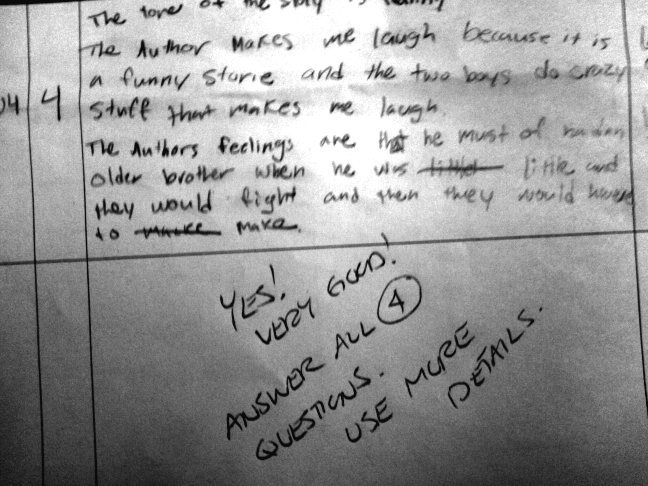 The tone of the story is funny
The Author Makes me laugh because it is
a funny storie and the two boys do crazy
04 4 Stuff that makes me laugh.
The Authors feelings are that he must of
older brother when he was little and
they would fight and then they would
to make.
YES!
VERY GOOD!
ANSWER ALL 4
QUESTIONS.
USE MORE
DETAILS.